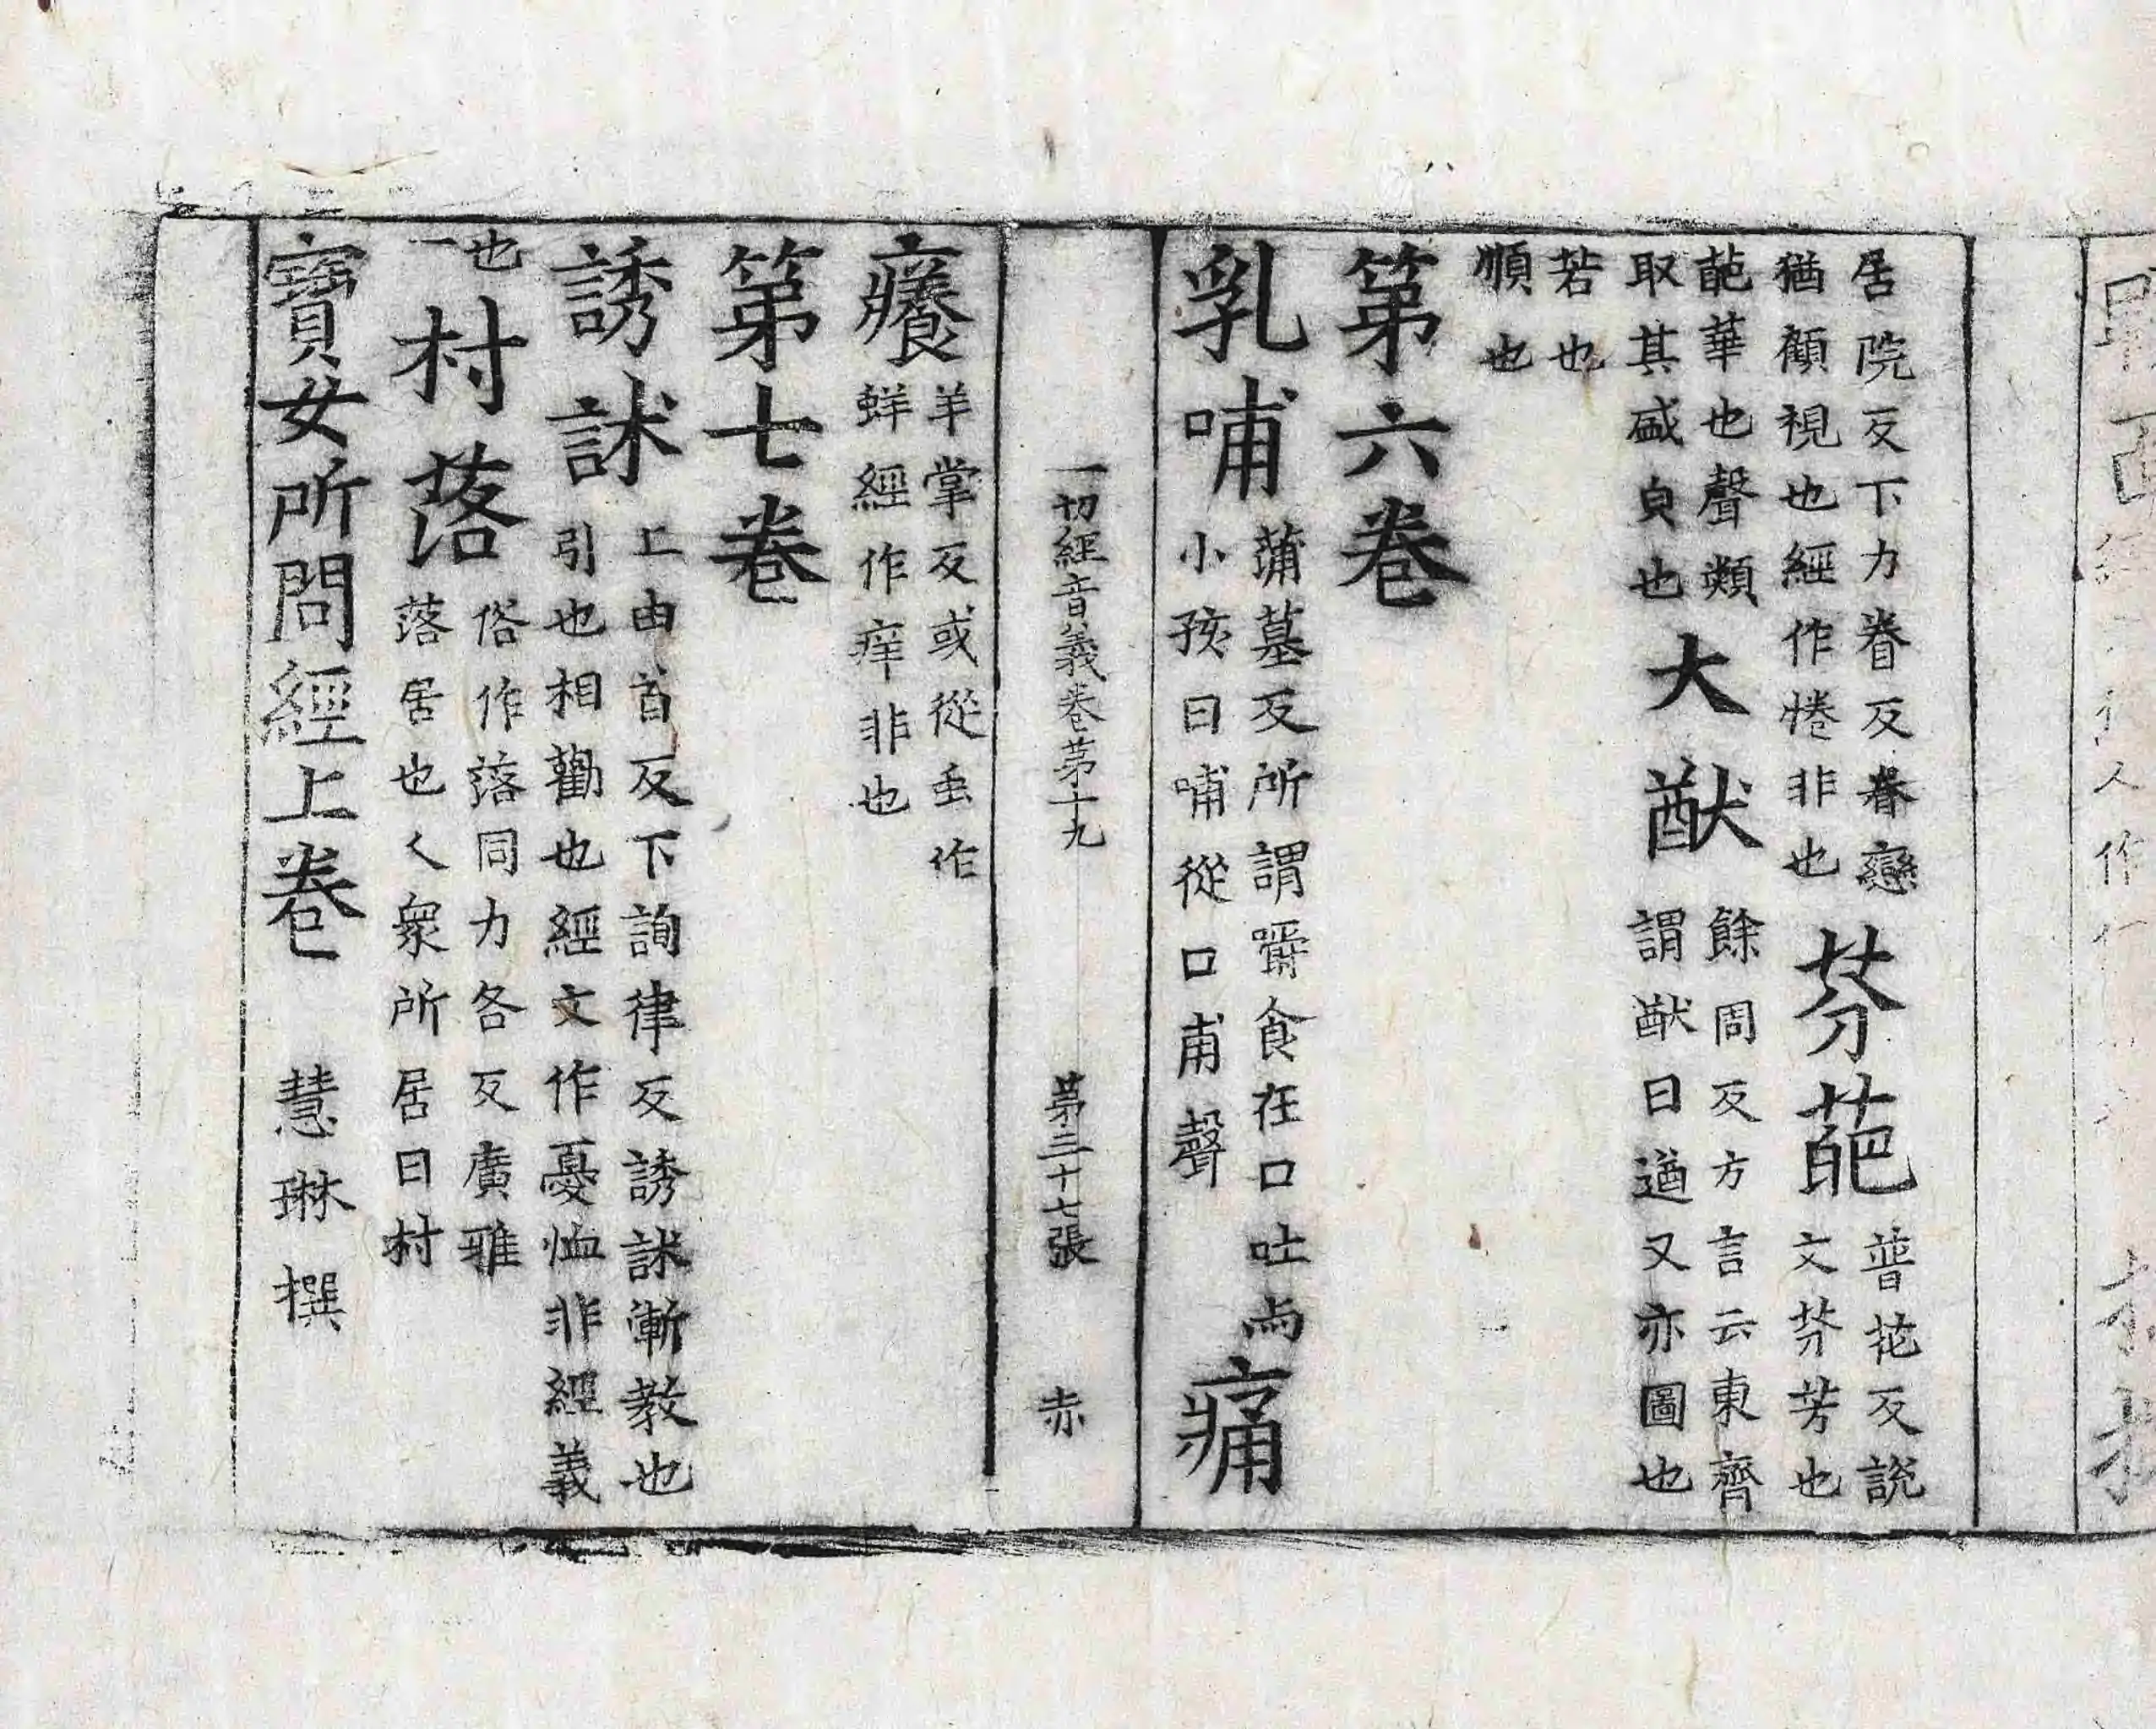 居院反下力眷反眷戀
猶顧視也經作惓非也
芬葩
普花反說
文芬芳也
葩華也聲類
取其盛皃也
大猷
餘周反方言云東齊
謂猷曰遒又亦圖也
若也
順也
第六卷
乳哺
蒲墓反所謂嚼食在口吐与
小孩曰哺從口甫聲
痛
一切經音義卷第十九 第三十七張 赤
癢
羊掌反或從虫作
蛘經作痒非也
第七卷
誘訹
上由首反下詢律反誘訹漸教也
引也相勸也經文作憂恤非經義
也
一
村落
俗作落同力各反廣雅
落居也人衆所居曰村
寶女所問經上卷 慧琳撰